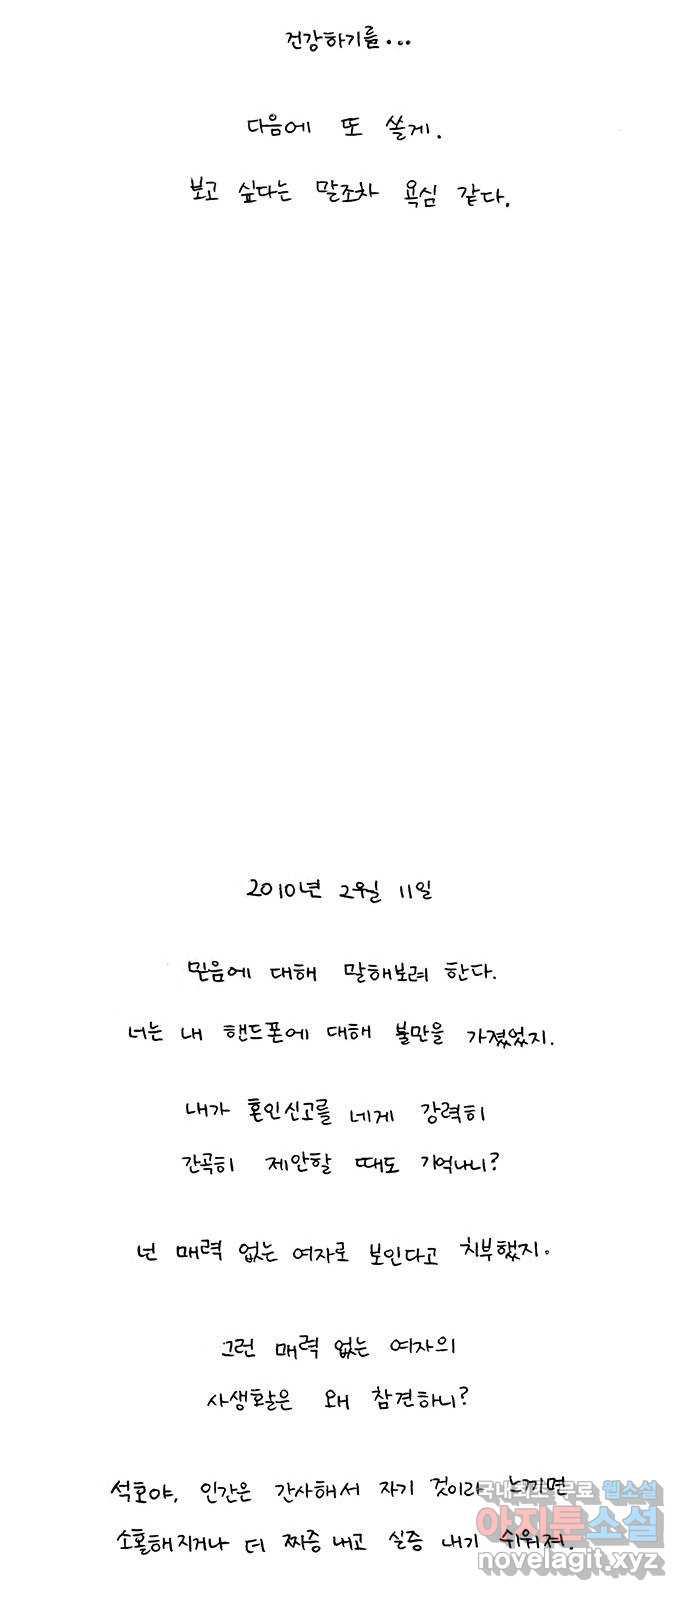 건강하기를...
다음에 또 쓸게.
보고 싶다는 말조차 욕심 같다.
2010년 2월 11일
믿음에 대해 말해보려 한다.
너는 내 핸드폰에 대해 불만을 가졌었지.
내가 혼인신고를 네게 강력히
간곡히 제안할 때도 기억나니?
넌 매력 없는 여자로 보인다고 치부했지.
그런 매력 없는 여자의
사생활은 왜 참견하니?
석호야, 인간은 간사해서 자기 것이라 느끼면
소홀해지거나 더 짜증 내고 싫증 내기 쉬워져.
국내최대 무료 웹소설
아지툰소설
novelagit.xyz